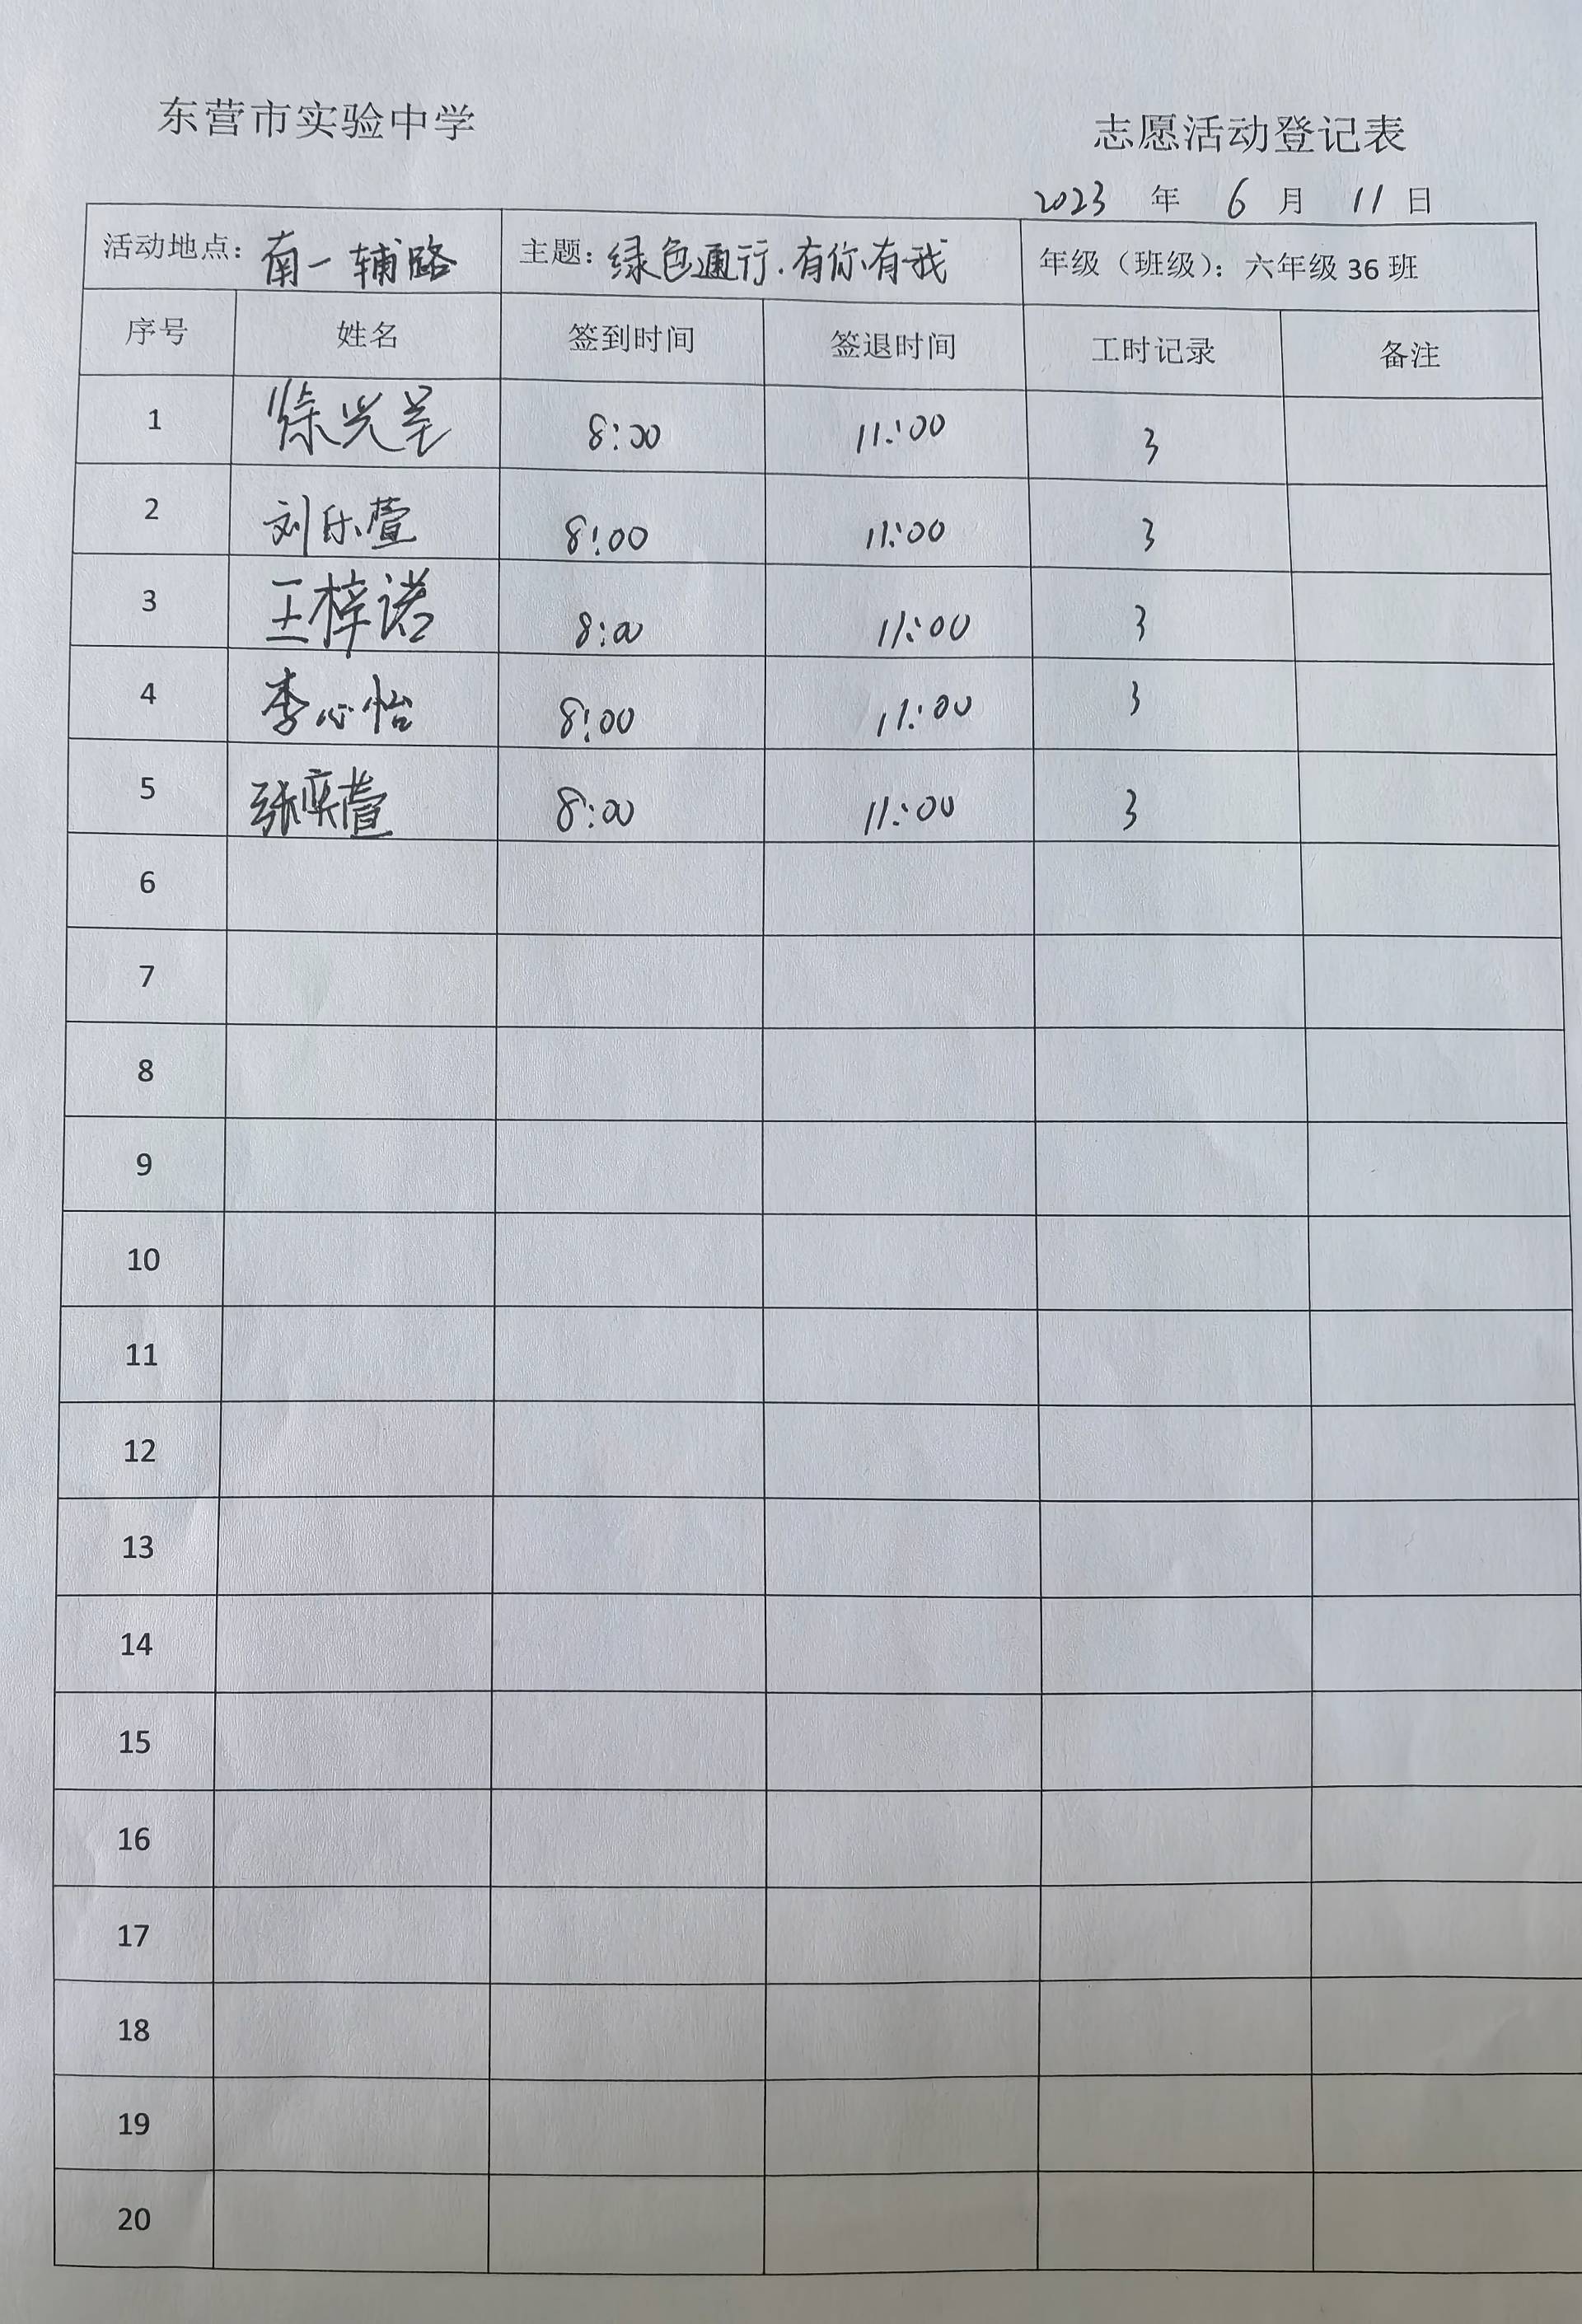 东营市实验中学
志愿活动登记表
2023 年 6 月 11 日
活动地点：南一辅路 主题：绿色通行.有你有我 年级（班级）：六年级 36 班
序号 姓名 签到时间 签退时间 工时记录 备注
1 徐 8:00 11:00 3
2 刘乐萱 8:00 11:00 3
3 王梓诺 8:00 11:00 3
4 李心怡 8:00 11:00 3
5 张奕萱 8:00 11:00 3
6
7
8
9
10
11
12
13
14
15
16
17
18
19
20